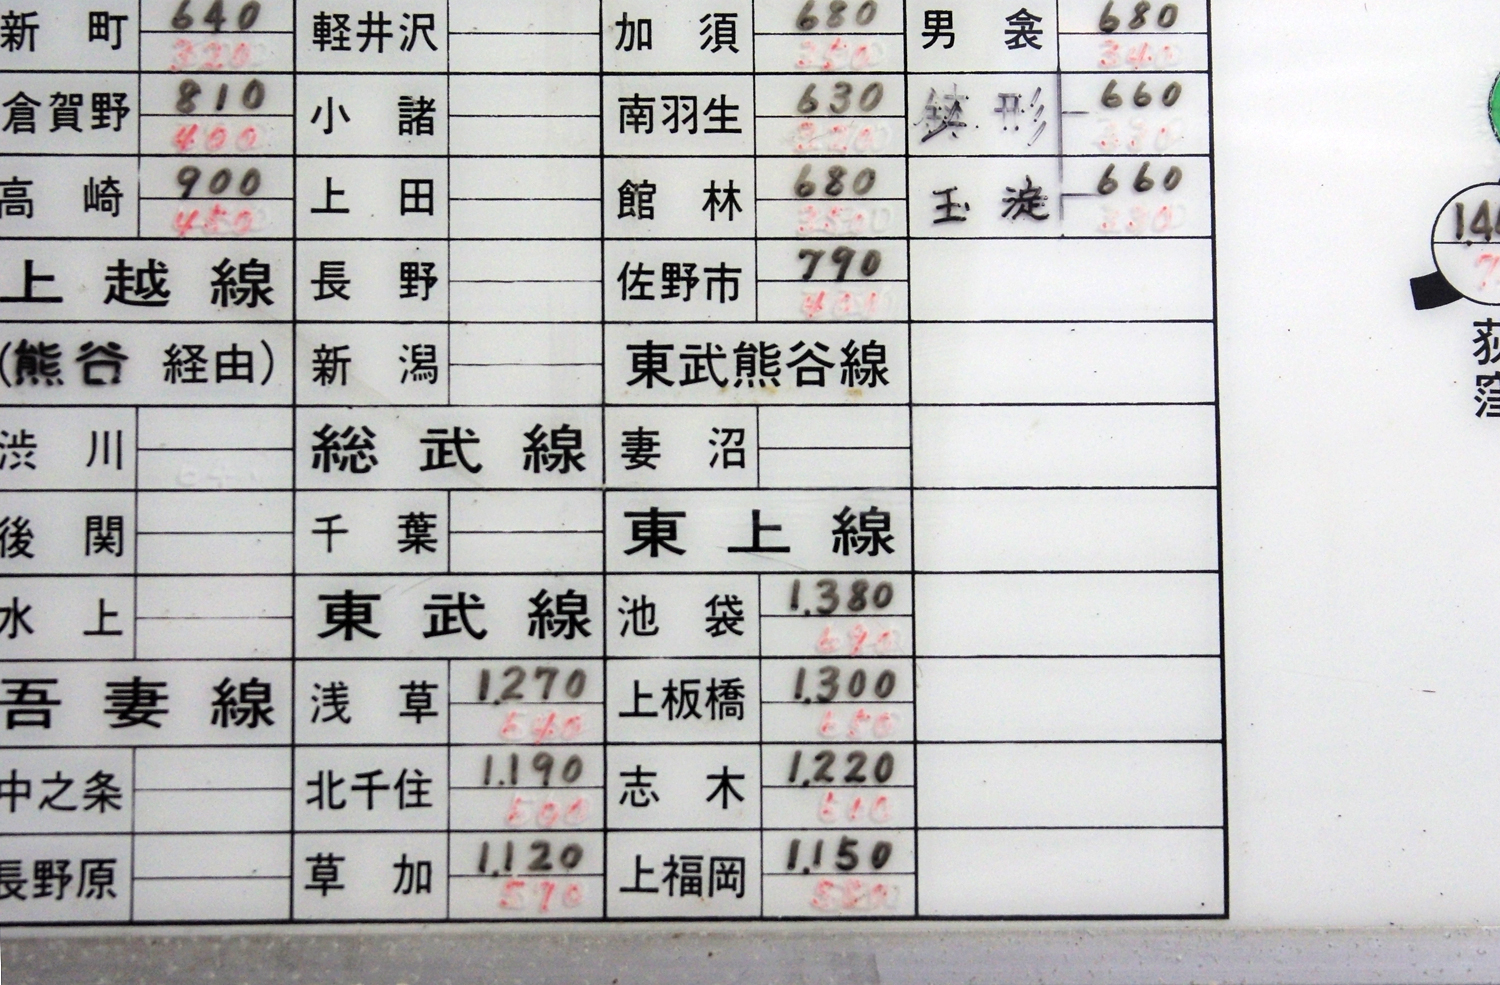 新町 640 320 軽井沢 加須 680 350 男衾 680 340
倉賀野 810 400 小諸 南羽生 630 320 鉢形 660 330
高崎 900 450 上田 館林 680 350 玉淀 660 330
上越線 長野 佐野市 790
(熊谷 経由) 新潟 東武熊谷線
渋川 総武線 妻沼
後関 千葉 東上線
水上 東武線 池袋 1,380 690
吾妻線 浅草 1,270 640 上板橋 1,300 650
中之条 北千住 1,190 600 志木 1,220 610
長野原 草加 1,120 570 上福岡 1,150 580
荻窪